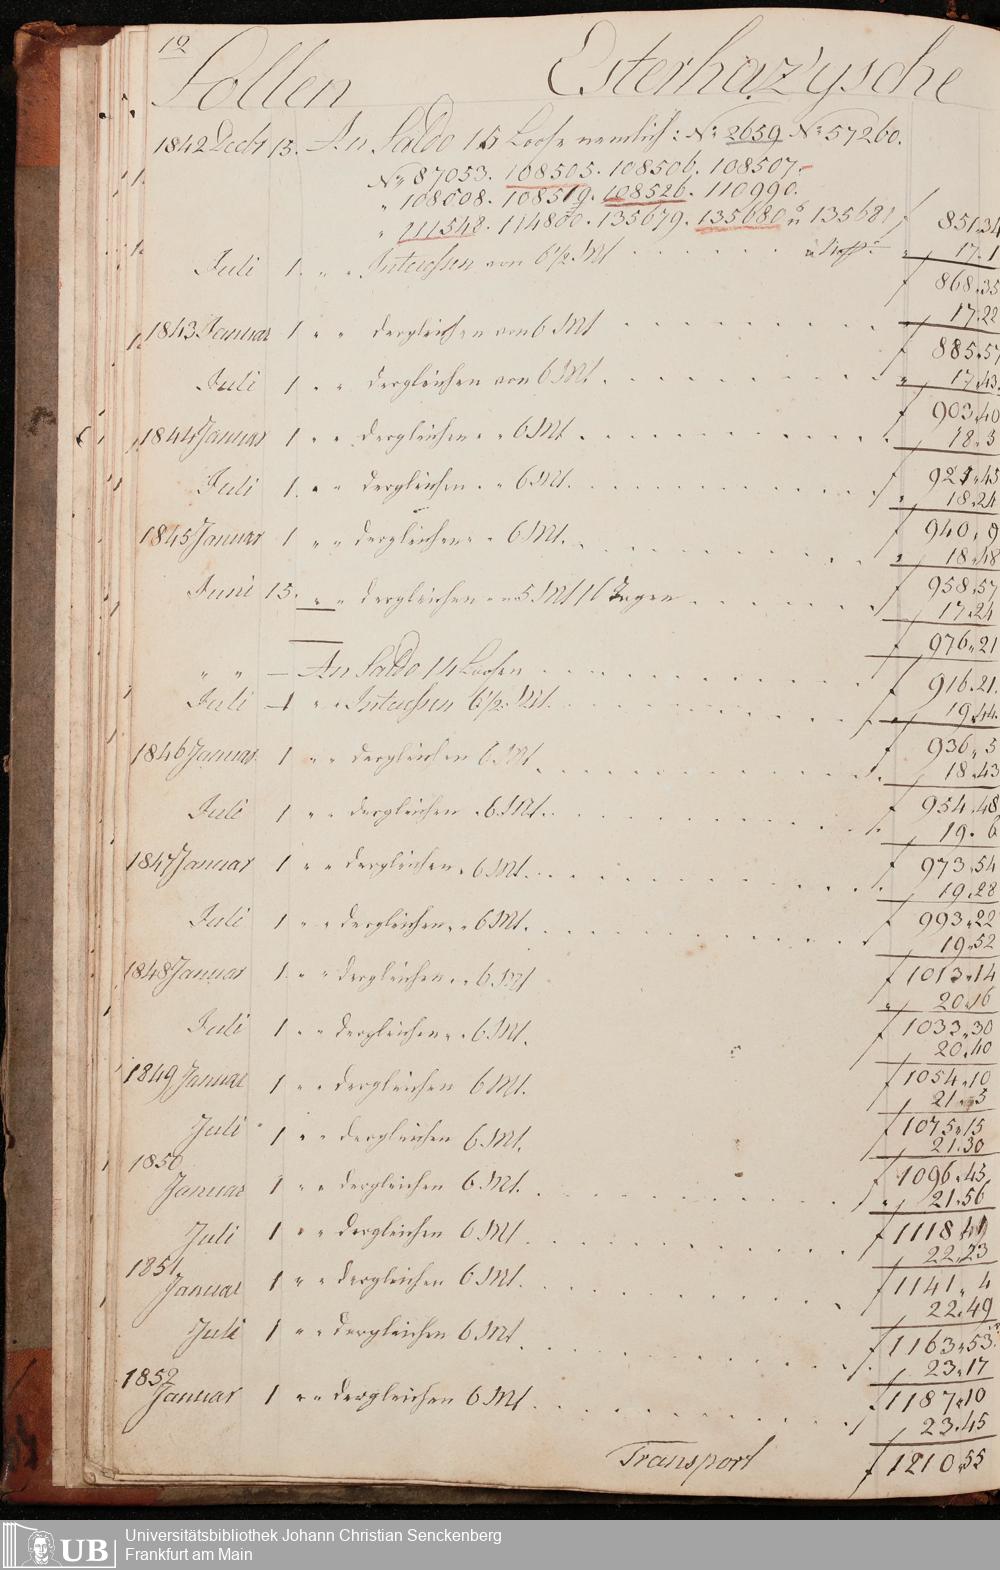 12
Sollen Esterhaz'ysche
1842 Decbr 15. An Saldo 15 Loose nemlich: No 2659 No 57260.
No 87053. 108505. 108506. 108507.
" 108508. 108519. 108526. 110990.
" 111548. 114800. 135679. 135680 u 135681 f 851.34
Juli 1. " " Interessen von 6 1/2 Mt " 17.1
f 868.35
1843 Januar 1 " " dergleichen von 6 Mt " 17.22
f 885.57
Juli 1. " " dergleichen von 6 Mt. " 17.43.
f 903.40
1844 Januar 1 " " dergleichen " " 6 Mt. 18.3
f 921.45
Juli 1. " " dergleichen " " 6 Mt. " 18.24
f 940.9
1845 Januar 1 " " dergleichen " " 6 Mt. " 18.48
f 958.57
Juni 15. " " dergleichen " " 5 Mt 16 Tagen 17.24
f 976.21
" " — An Saldo 14 Loosen f 916.21.
Juli 1 " " Interessen 6 1/2 Mt. " 19.44.
f 936.5
1846 Januar 1 " " dergleichen 6 Mt 18.43
f 954.48
Juli 1 " " dergleichen " 6 Mt. 19.6
f 973.54
1847 Januar 1 " " dergleichen " 6 Mt. 19.28
f 993.22
Juli 1 " " dergleichen " " 6 Mt. 19.52
f 1013.14
1848 Januar 1. " " dergleichen " " 6 Mt " 20.16
f 1033.30
Juli 1 " " dergleichen " " 6 Mt. 20.40
f 1054.10
1849 Januar 1 " " dergleichen 6 Mt. 21.5
f 1075.15
Juli 1 " " dergleichen 6 Mt. 21.30
f 1096.45
1850
Januar 1 " " dergleichen 6 Mt. " 21.56
f 1118.41
Juli 1 " " dergleichen 6 Mt 22.23
f 1141.4
1851.
Januar 1 " " dergleichen 6 Mt. 22.49
f 1163.53
Juli 1 " " dergleichen 6 Mt 23.17
f 1187.10
1852
Januar 1 " " dergleichen 6 Mt 23.45
Transport f 1210.55
UB Universitätsbibliothek Johann Christian Senckenberg
Frankfurt am Main